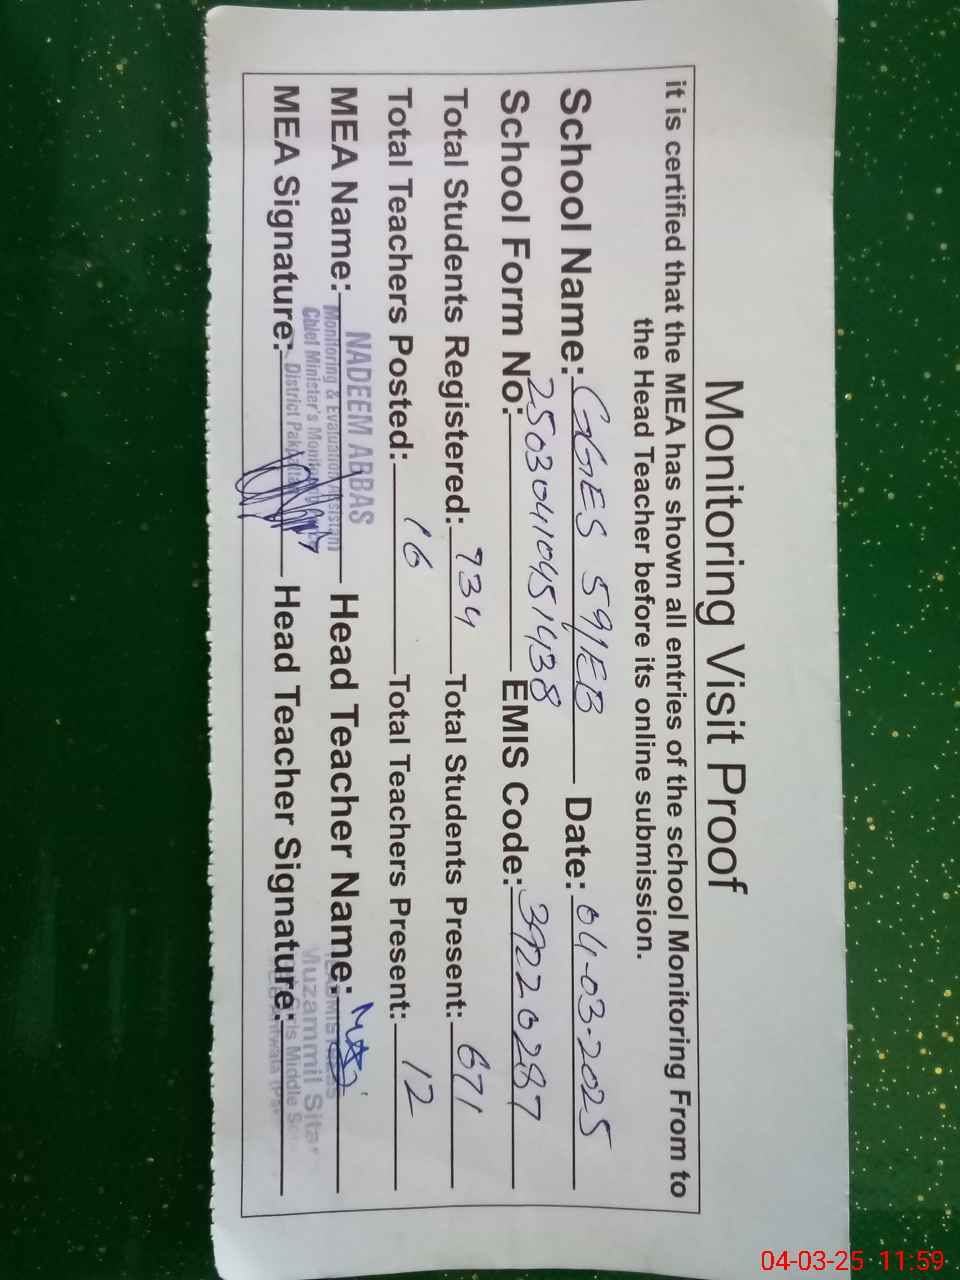 Monitoring Visit Proof
it is certified that the MEA has shown all entries of the school Monitoring From to
the Head Teacher before its online submission.
School Name: GGES 59/EB Date: 04-03-2025
School Form No: 25030410451438 EMIS Code: 39220287
Total Students Registered: 734 Total Students Present: 671
Total Teachers Posted: 16 Total Teachers Present: 12
NADEEM ABBAS
MEA Name: Head Teacher Name:
Monitoring & Evaluation Assistant
Chief Minister's
Muzammil
MEA Signature: Head Teacher Signature:
District
Middle
04-03-25 11:59